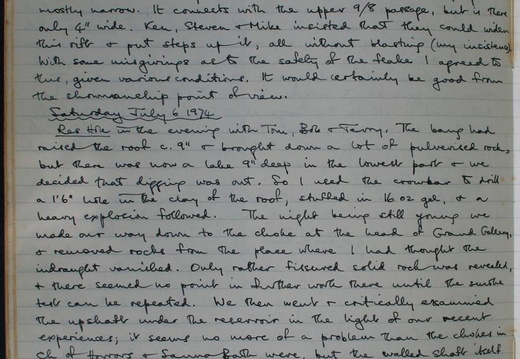 mostly narrow. It connects with the upper 9/8 passage, but is there
only 4" wide. Ken, Steven & Mike insisted that they could widen
this rift & put steps up it, all without blasting (my insistence).
With some misgivings as to the safety of the flake I agreed to
this, given various conditions. It would certainly be good from
the showmanship point of view.
Saturday July 6 1974
Res Hole in the evening with Tim, Bob & Terry. The bang had
raised the roof c. 9" & brought down a lot of pulverised rock,
but there was now a lake 9" deep in the lowest part & we
decided that digging was out. So I used the crowbar to drill
a 1'6" hole in the clay of the roof, stuffed in 16 oz gel, & a
heavy explosion followed. The night being still young we
made our way down to the choke at the head of Grand Gallery,
& removed rocks from the place where I had thought the
indraught vanished. Only rather fissured solid rock was revealed,
& there seemed no point in further work there until the smoke
test can be repeated. We then went & critically examined
the upshaft under the reservoir in the light of our recent
experiences; it seems no more of a problem than the chokes in
Ch of Horrors & Sauna Bath were, but the walled shaft itself